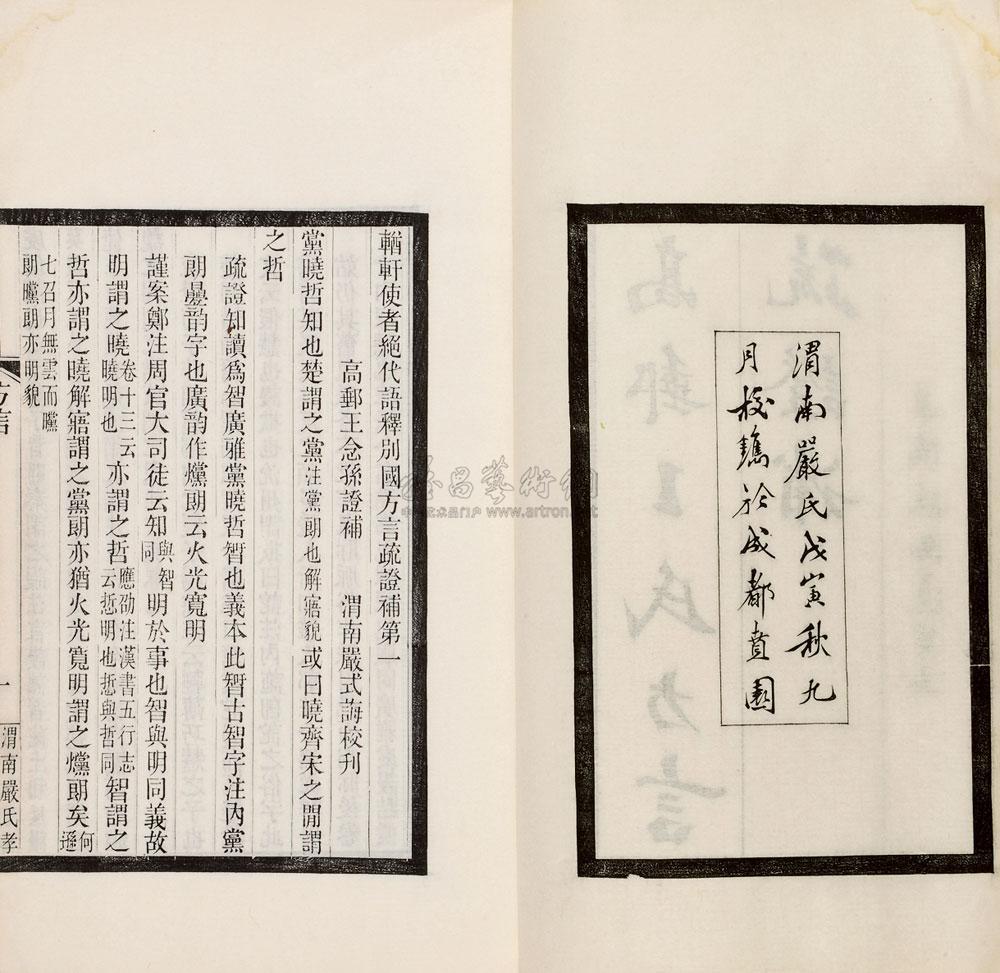 渭南嚴氏戊寅秋九
月校鐫於成都賁園
輶軒使者絕代語釋別國方言疏證補第一
高郵王念孫證補 渭南嚴式誨校刊
黨曉哲知也楚謂之黨注黨朗也解寤貌或曰曉齊宋之閒謂
之哲
疏證知讀爲智廣雅黨曉哲䝷也義本此䝷古智字注內黨
朗疊韵字也廣韵作爣朗云火光寬明
謹案鄭注周官大司徒云知與智同明於事也智與明同義故
明謂之曉卷十三云曉明也亦謂之哲應劭注漢書五行志云悊明也悊與哲同智謂之
哲亦謂之曉解寤謂之黨朗亦猶火光寬明謂之爣朗矣何遜
七召月無雲而曭
朗曭朗亦明貌
方言
一
渭南嚴氏孝
www.artron.net